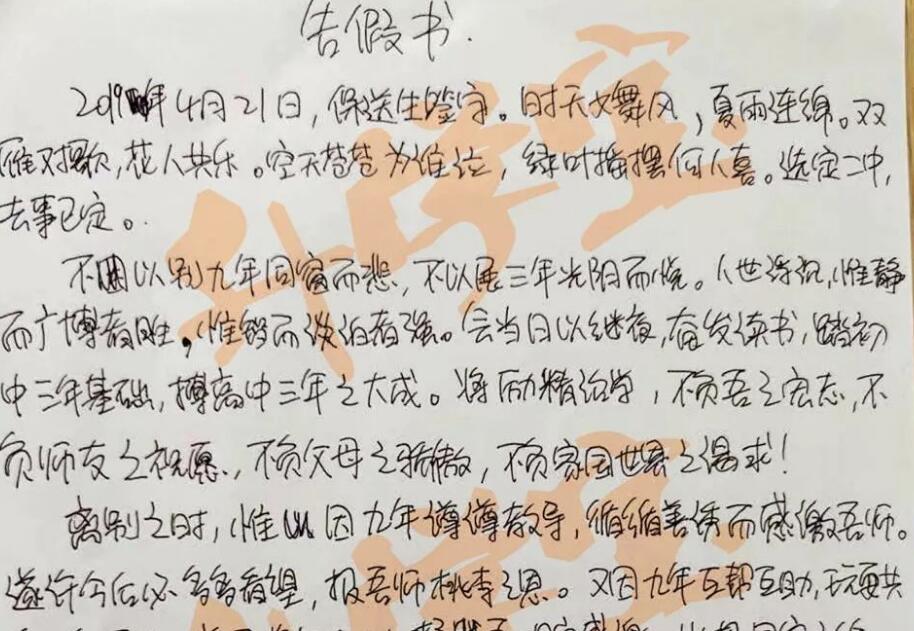 告假书.
2019年4月21日,保送生鉴定。时天文舞风,夏雨连绵。双
雁对歌,花人共乐。空天苍苍为谁泣,绿叶摇摆何人喜。选定二中,
去事已定。
不因以别九年同窗而悲,不以展三年光阴而悦。人世浮沉,惟静
而广博者胜,惟智而淡泊者强。会当日以继夜,奋发读书,踏初
中三年基础,搏高中三年之大成。将励精治学,不负吾之宏志,不
负师友之祝愿,不负父母之骄傲,不负家国世界之渴求!
离别之时,惟以因九年谆谆教导,循循善诱而感激吾师。
遂许今后必多多看望,报吾师桃李之恩。又因九年互帮互助,玩耍共
升学宝
升学宝